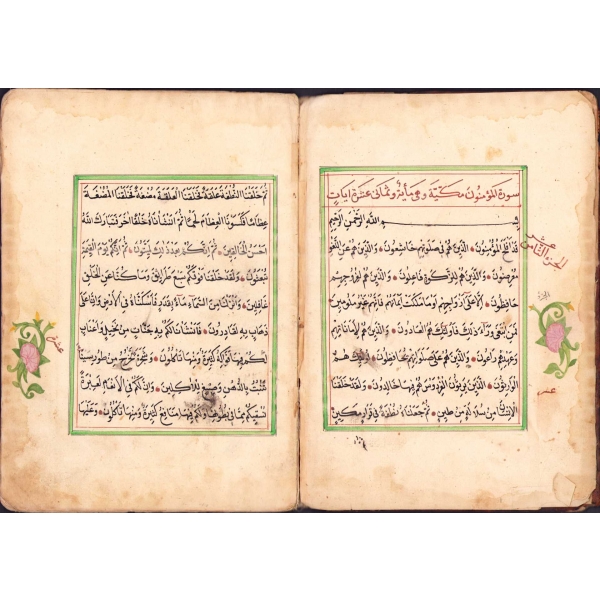 سورة المؤمنون مكية وهي مائة وثماني عشرة ايات
بسم الله الرحمن الرحيم
قد افلح المؤمنون والذين هم في صلوتهم خاشعون والذين هم عن اللغو
معرضون والذين هم للزكوة فاعلون والذين هم لفروجهم
حافظون الا على ازواجهم او ما ملكت ايمانهم فانهم غير ملومين
فمن ابتغى وراء ذلك فاولئك هم العادون والذين هم لاماناتهم
وعهدهم راعون والذين هم على صلواتهم يحافظون اولئك هم
الوارثون الذين يرثون الفردوس هم فيها خالدون ولقد خلقنا
الانسان من سلالة من طين ثم جعلناه نطفة في قرار مكين
الجزء الثامن عشر
عشر
ثم خلقنا النطفة علقة فخلقنا العلقة مضغة فخلقنا المضغة
عظاما فكسونا العظام لحما ثم انشأناه خلقا اخر فتبارك الله
احسن الخالقين ثم انكم بعد ذلك لميتون ثم انكم يوم القيمة
تبعثون ولقد خلقنا فوقكم سبع طرائق وما كنا عن الخلق
غافلين وانزلنا من السماء ماء بقدر فاسكناه في الارض وانا على
ذهاب به لقادرون فانشأنا لكم به جنات من نخيل واعناب
لكم فيها فواكه كثيرة ومنها تأكلون وشجرة تخرج من طور سيناء
تنبت بالدهن وصبغ للاكلين وان لكم في الانعام لعبرة
نسقيكم مما في بطونها ولكم فيها منافع كثيرة ومنها تأكلون وعليها
عشر